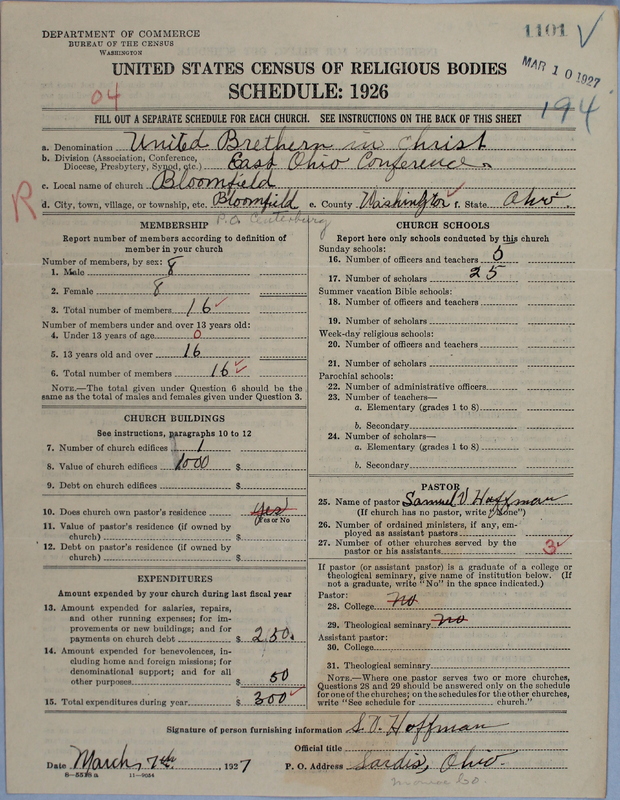 DEPARTMENT OF COMMERCE
BUREAU OF THE CENSUS
WASHINGTON
1101
MAR 10 1927
194
UNITED STATES CENSUS OF RELIGIOUS BODIES
SCHEDULE: 1926
04
FILL OUT A SEPARATE SCHEDULE FOR EACH CHURCH. SEE INSTRUCTIONS ON THE BACK OF THIS SHEET
a. Denomination United Brethern in Christ
b. Division (Association, Conference, Diocese, Presbytery, Synod, etc.) East Ohio Conference.
c. Local name of church Bloomfield
R
d. City, town, village, or township, etc. Bloomfield e. County Washington f. State Ohio.
P.O. Centerburg
MEMBERSHIP
Report number of members according to definition of
member in your church
Number of members, by sex:
1. Male 8
2. Female 8
3. Total number of members 16
Number of members under and over 13 years old:
4. Under 13 years of age 0
5. 13 years old and over 16
6. Total number of members 16
NOTE.—The total given under Question 6 should be the
same as the total of males and females given under Question 3.
CHURCH BUILDINGS
See instructions, paragraphs 10 to 12
7. Number of church edifices 1
8. Value of church edifices 1000 $
9. Debt on church edifices $
10. Does church own pastor's residence yes
Yes or No
11. Value of pastor's residence (if owned by
church) $
12. Debt on pastor's residence (if owned by
church) $
EXPENDITURES
Amount expended by your church during last fiscal year
13. Amount expended for salaries, repairs,
and other running expenses; for im-
provements or new buildings; and for
payments on church debt $ 250.
14. Amount expended for benevolences, in-
cluding home and foreign missions; for
denominational support; and for all
other purposes $ 50
15. Total expenditures during year $ 300
CHURCH SCHOOLS
Report here only schools conducted by this church
Sunday schools:
16. Number of officers and teachers
17. Number of scholars 25
Summer vacation Bible schools:
18. Number of officers and teachers
19. Number of scholars
Week-day religious schools:
20. Number of officers and teachers
21. Number of scholars
Parochial schools:
22. Number of administrative officers
23. Number of teachers—
a. Elementary (grades 1 to 8)
b. Secondary
24. Number of scholars—
a. Elementary (grades 1 to 8)
b. Secondary
PASTOR
25. Name of pastor Samuel V Hoffman
(If church has no pastor, write "None")
26. Number of ordained ministers, if any, em-
ployed as assistant pastors
27. Number of other churches served by the
pastor or his assistants 3
If pastor (or assistant pastor) is a graduate of a college or
theological seminary, give name of institution below. (If
not a graduate, write "No" in the space indicated.)
Pastor:
28. College no
29. Theological seminary no
Assistant pastor:
30. College
31. Theological seminary
NOTE.—Where one pastor serves two or more churches,
Questions 28 and 29 should be answered only on the schedule
for one of the churches; on the schedules for the other churches,
write "See schedule for church."
Signature of person furnishing information S. V. Hoffman
Official title
Date March 7th, 1927 P. O. Address Sardis, Ohio.
6—5578 a 11—9024
Monroe Co.